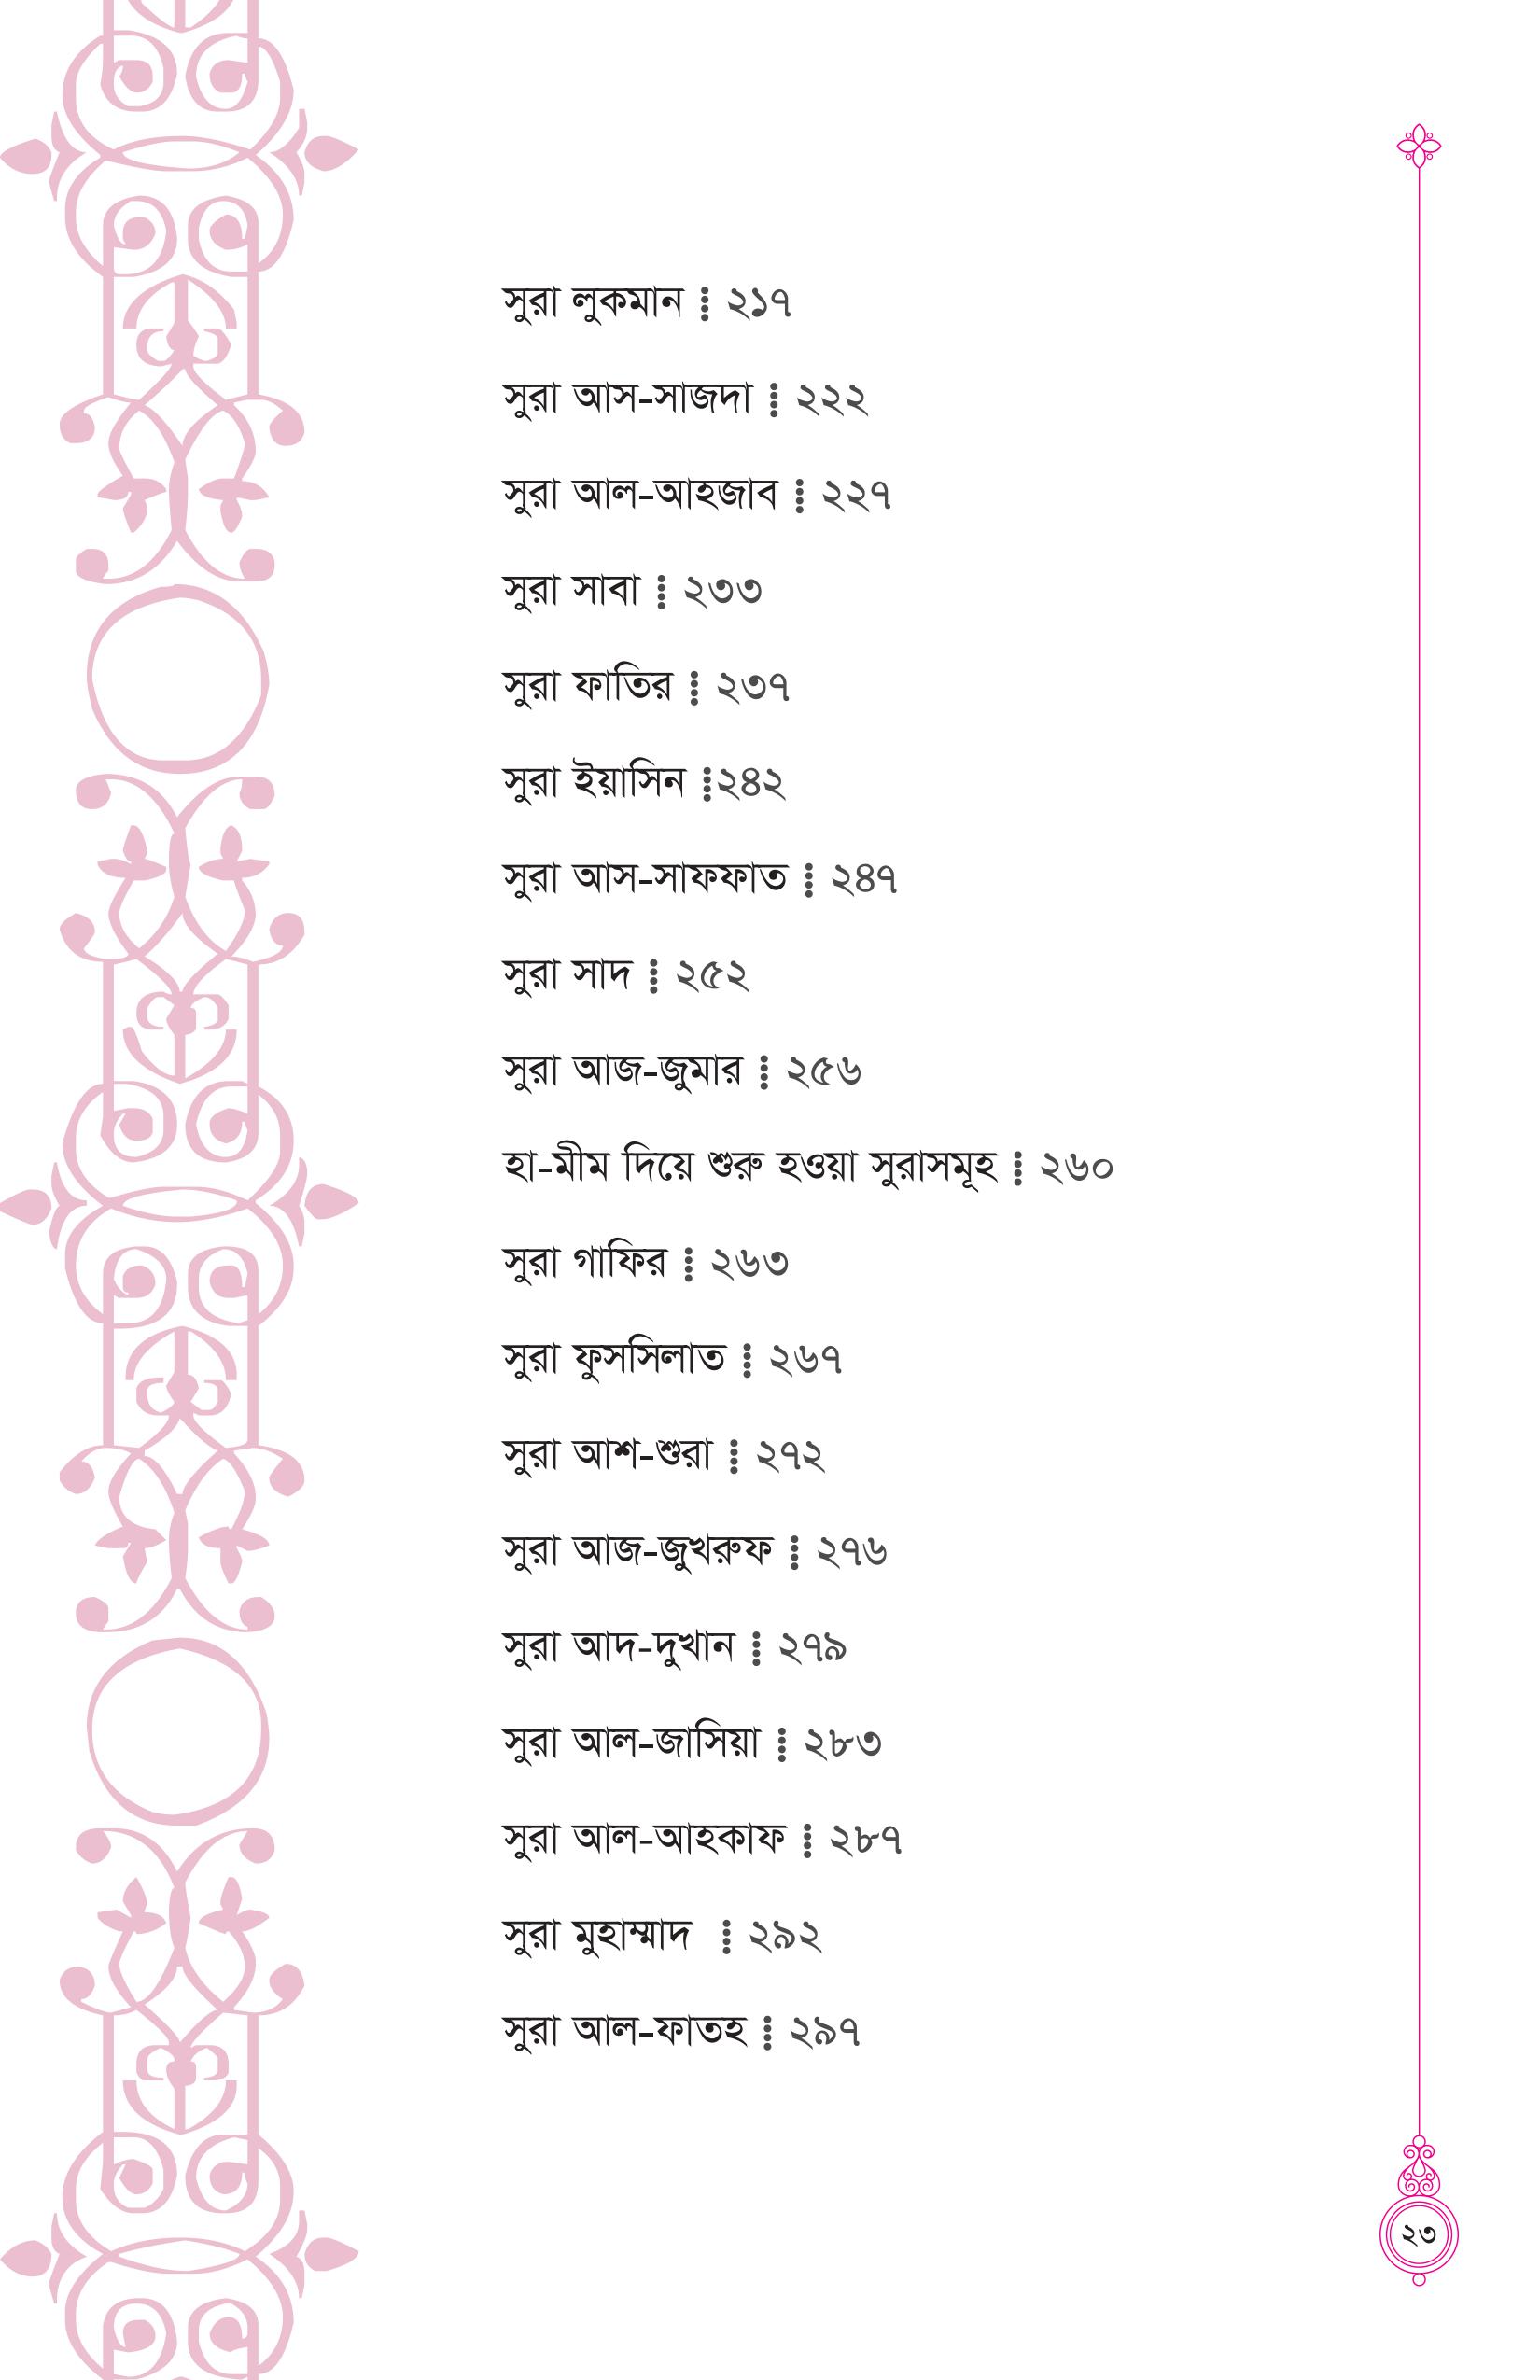 সুরা লুকমান ⁞ ২১৭
সুরা আস-সাজদা ⁞ ২২২
সুরা আল-আহজাব ⁞ ২২৭
সুরা সাবা ⁞ ২৩৩
সুরা ফাতির ⁞ ২৩৭
সুরা ইয়াসিন ⁞ ২৪২
সুরা আস-সাফফাত ⁞ ২৪৭
সুরা সাদ ⁞ ২৫২
সুরা আজ-জুমার ⁞ ২৫৬
হা-মীম দিয়ে শুরু হওয়া সুরাসমূহ ⁞ ২৬০
সুরা গাফির ⁞ ২৬৩
সুরা ফুসসিলাত ⁞ ২৬৭
সুরা আশ-শুরা ⁞ ২৭২
সুরা আজ-জুখরুফ ⁞ ২৭৬
সুরা আদ-দুখান ⁞ ২৭৯
সুরা আল-জাসিয়া ⁞ ২৮৩
সুরা আল-আহকাফ ⁞ ২৮৭
সুরা মুহাম্মাদ ⁞ ২৯২
সুরা আল-ফাতহ ⁞ ২৯৭
২৩